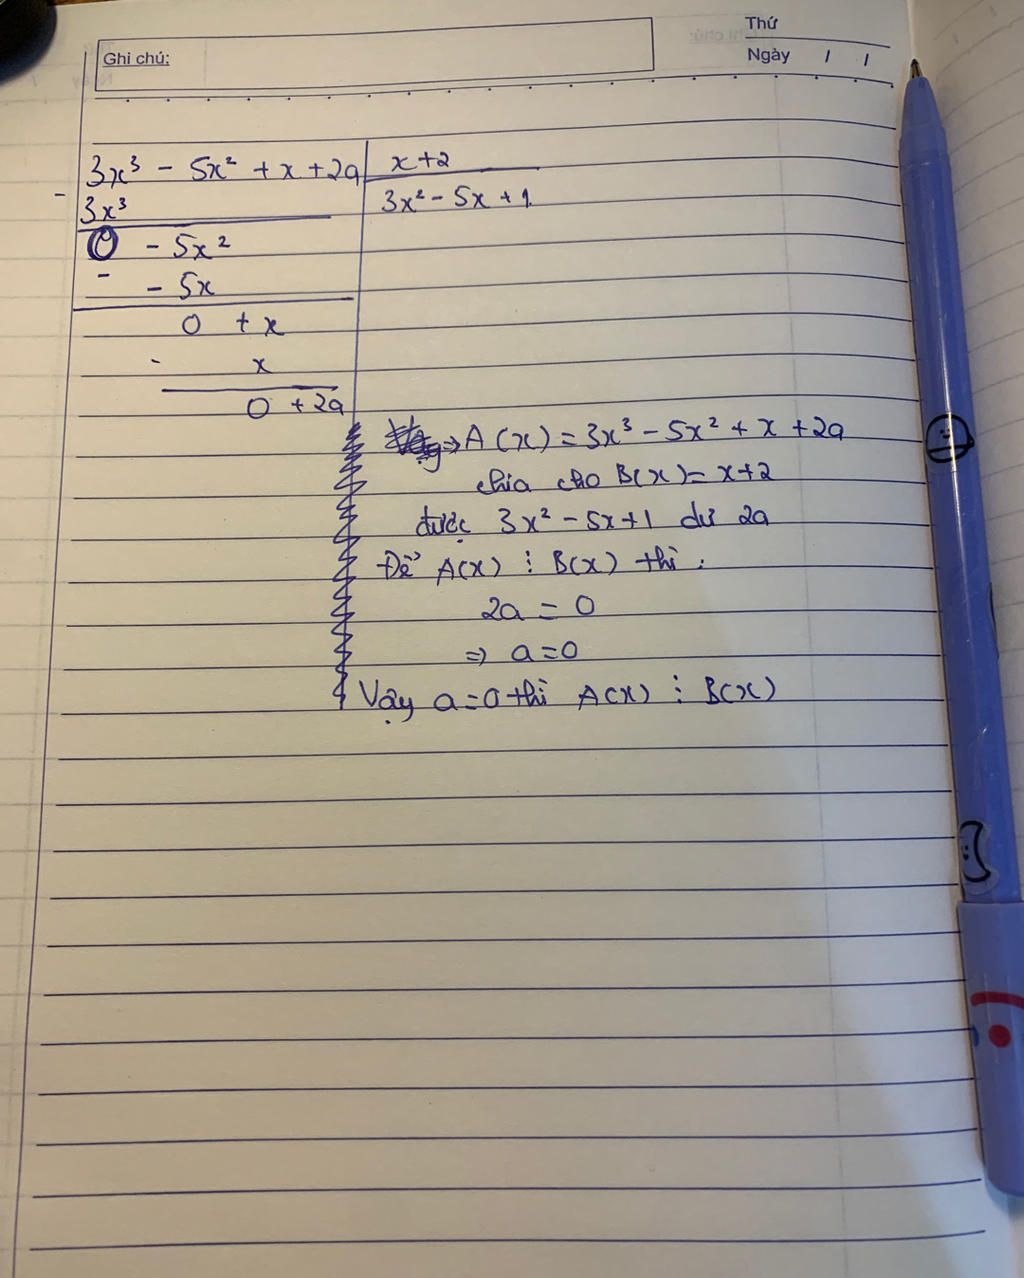 Thứ
Ghi chú:
Ngày / /
3x³ - 5x² + x + 2a
x+2
- 3x³
3x² - 5x + 1.
0 - 5x²
- - 5x
0 + x
- x
0 + 2a
⇒ A(x) = 3x³ - 5x² + x + 2a
chia cho B(x) = x+2
được 3x² - 5x + 1 dư 2a
Để A(x) ⋮ B(x) thì :
2a = 0
⇒ a = 0
Vậy a = 0 thì A(x) ⋮ B(x)